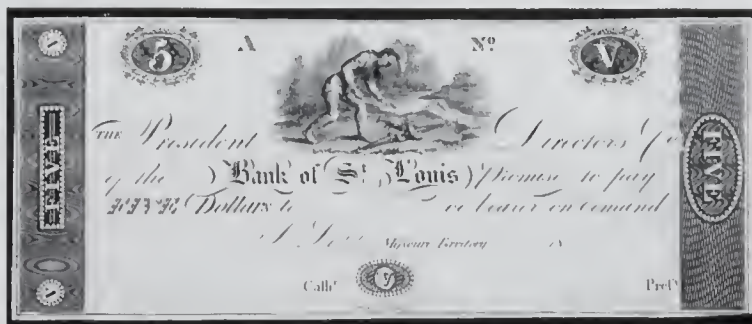 5 A Nº V
FIVE
FIVE
THE President Directors
of the Bank of St. Louis Promise to pay
FIVE Dollars to or bearer on demand
St Missouri Territory 18
Cashr 5 Prest